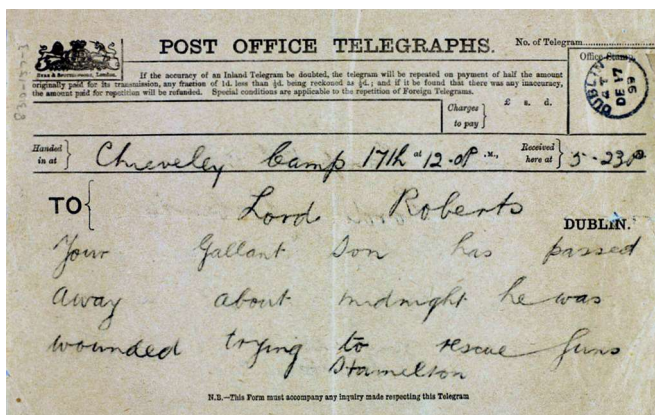 8310-157-3
POST OFFICE TELEGRAPHS.
No. of Telegram
If the accuracy of an Inland Telegram be doubted, the telegram will be repeated on payment of half the amount
originally paid for its transmission, any fraction of 1d. less than ½d. being reckoned as ½d.; and if it be found that there was any inaccuracy,
the amount paid for repetition will be refunded. Special conditions are applicable to the repetition of Foreign Telegrams.
Office Stamp.
DUBLIN
DE 17
99
Charges to pay
£ s. d.
Handed in at Chieveley Camp 17th at 12.0P .M., Received here at 5-23P
TO Lord Roberts
DUBLIN.
Your Gallant Son has passed
away about midnight he was
wounded trying to rescue guns
N.B.—This Form must accompany any inquiry made respecting this Telegram